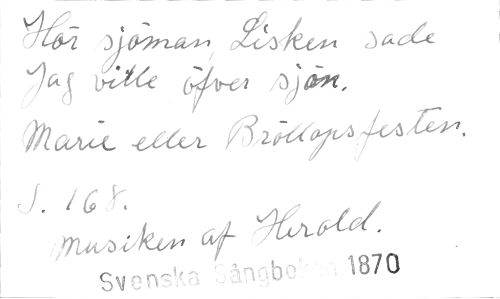 Hör sjöman, Lisken sade
Jag ville öfver sjön.
Marie eller Bröllopsfesten.
S. 168.
Musiken af Herold.
Svenska Sångboken 1870